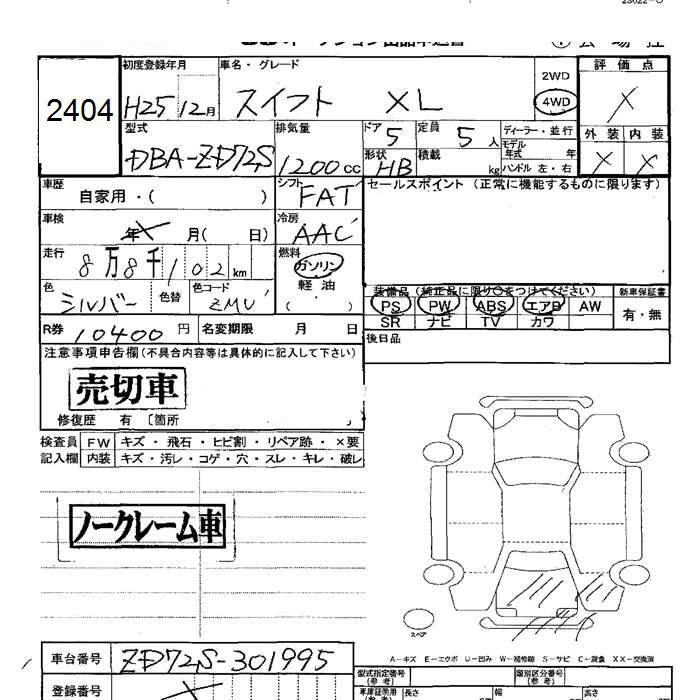 初度登録年月 車名・グレード 評価点
2404 H25 12月 スイフト XL 2WD 4WD X
型式 排気量 ドア 5 定員 5人 ディーラー・並行 外装 内装
DBA-ZD72S 1200cc 形状 HB 積載 kg モデル年式 年 ハンドル 左・右 X X
車歴 自家用・( ) シフト FAT セールスポイント (正常に機能するものに限ります)
車検 年 月( 日) 冷房 AAC
走行 8万8千102km 燃料 ガソリン 軽油 ( )
色 シルバー 色替 色コード ZMU 装備品 (純正品に限り○をつけてください) 新車保証書
PS PW ABS エアB AW 有・無
SR ナビ TV カワ
R券 10400円 名変期限 月 日 後日品
注意事項申告欄(不具合内容等は具体的に記入して下さい)
売切車
修復歴 有 〔箇所
検査員 FW キズ・飛石・ヒビ割・リペア跡・×要
記入欄 内装 キズ・汚レ・コゲ・穴・スレ・キレ・破レ
ノークレーム車
スペア
A-キズ E-エクボ U-凹み W-補修跡 S-サビ C-腐食 XX-交換済
車台番号 ZD72S-301995 型式指定番号 (参考) 類別区分番号 (参考)
登録番号 長さ 幅 高さ